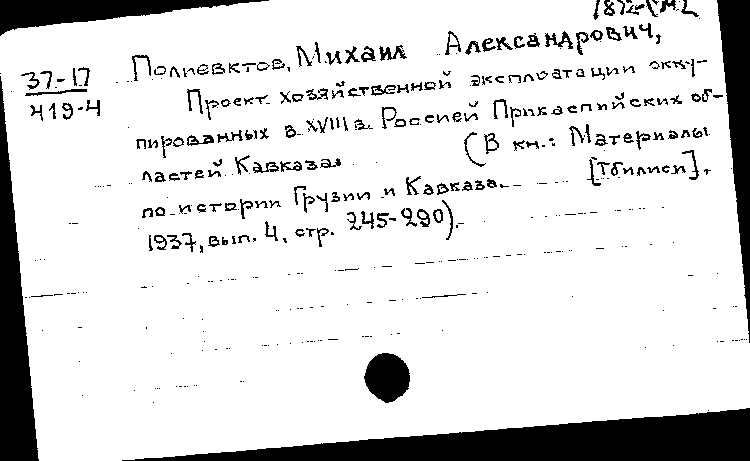 37-17
419-4
Полиевктов, Михаил Александрович,
Проект хозяйственной эксплоатации окку-
пированных в XVIII в. Россией Прикаспийских об-
ластей Кавказа. (В кн.: Материалы
по истории Грузии и Кавказа. [Тбилиси],
1937, вып. 4, стр. 245-290).